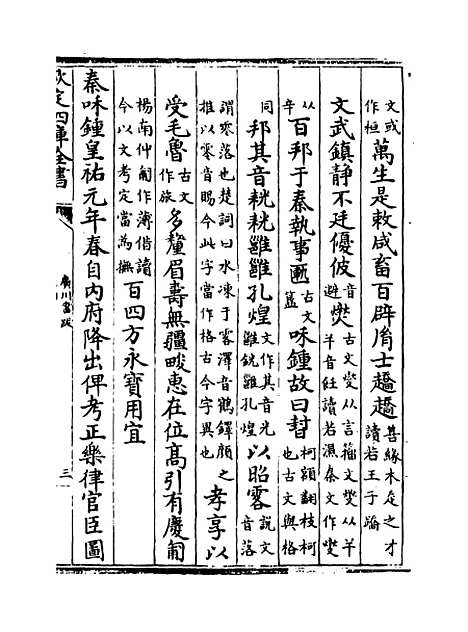 文或作桓萬生是敕咸畜百辟胤士趫趫善緣木走之才讀若王子蹻
文武鎮静不廷優彼音避燓古文燮从言籒文燮从羊羊音飪讀若濕秦文作燮
从辛百邦于秦執事匭古文簋咊鍾故曰柯額翻枝柯也古文與格
同邦其音雝雝孔煌文作其音光雝銑雝孔煌以昭零說文音落
謂零落也楚詞曰水凍于零澤音鶴鐸顔之推以零音賜今此字當作格古今字異也孝享以
受毛魯古文作旅多釐眉壽無疆畯惠在位髙引有慶匍
楊南仲匍作薄借讀今以文考定當為撫百四方永寶用宜
秦咊鍾皇祐元年春自内府降出俾考正樂律官臣圖
欽定四庫全書
廣川書跋
三